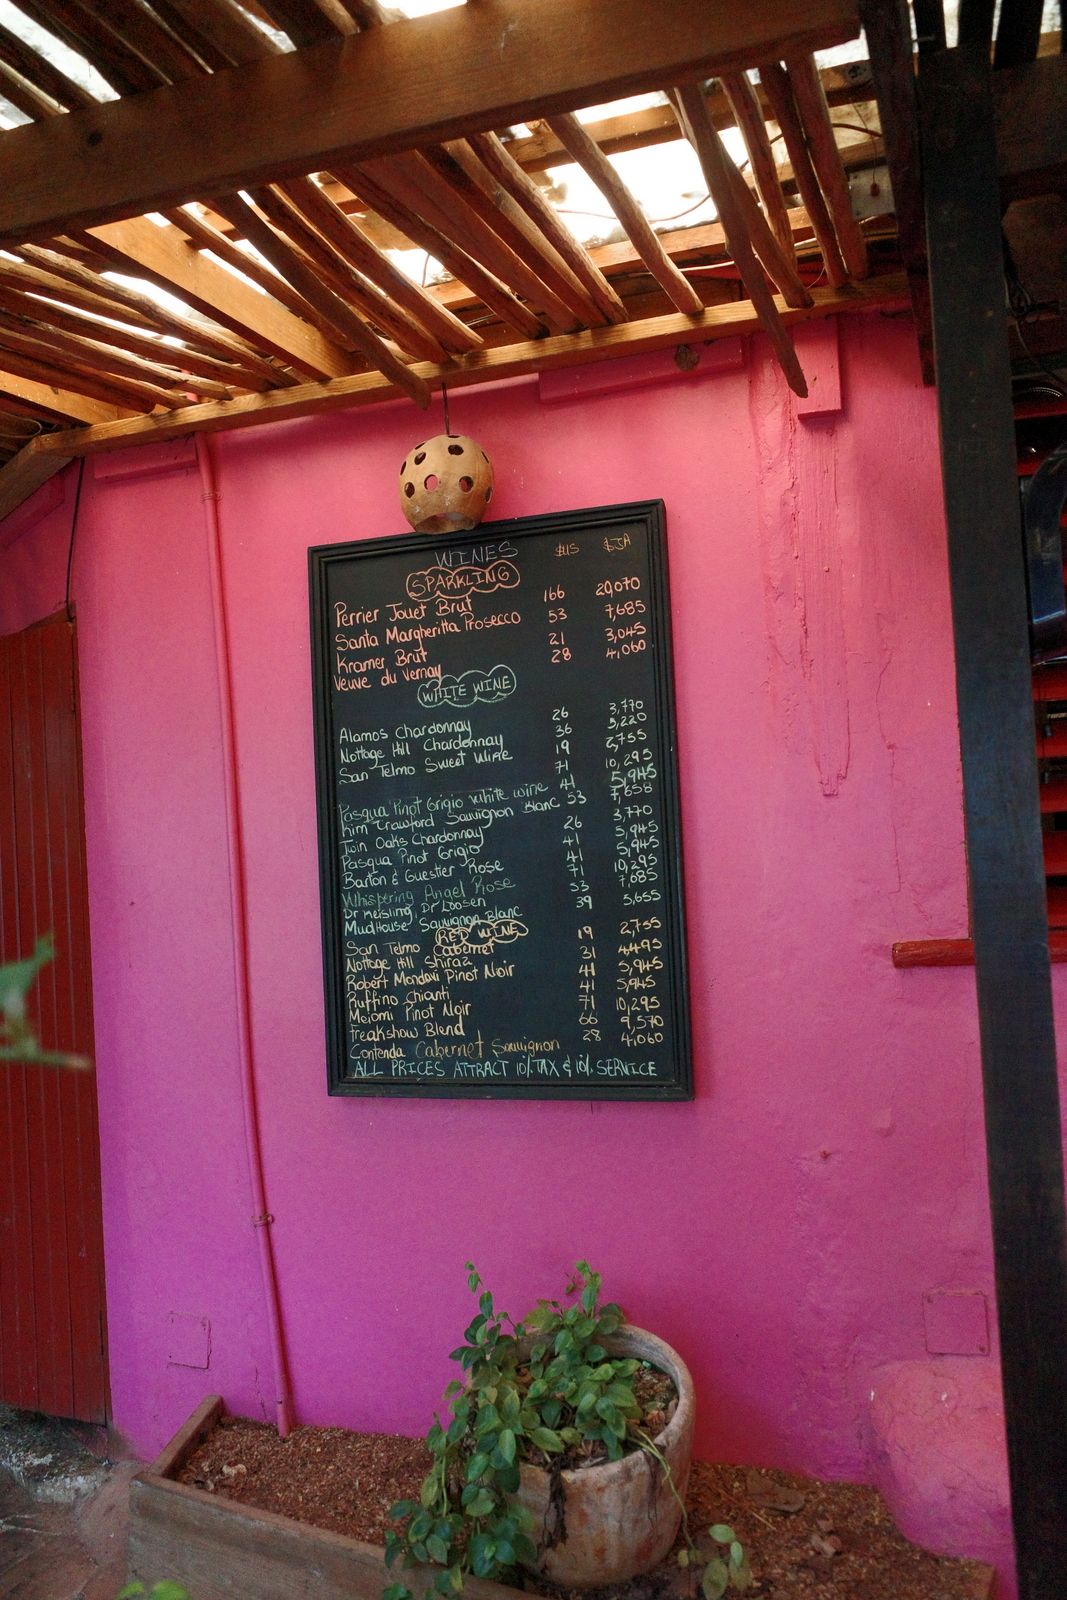 WINES $US $JA
SPARKLING
Perrier Jouet Brut 166 20,070
Santa Margheritta Prosecco 53 7,685
Kramer Brut 21 3,045
Veuve du Vernay 28 4,060
WHITE WINE
Alamos Chardonnay 26 3,770
Nottage Hill Chardonnay 36 5,220
San Telmo Sweet Wine 19 2,755
Pasqua Pinot Grigio white wine 71 10,295
Kim Crawford Sauvignon Blanc 41 5,945
Twin Oaks Chardonnay 53 7,658
Pasqua Pinot Grigio 26 3,770
Barton & Guestier Rose 41 5,945
Whispering Angel Rose 41 5,945
Dr Reisling, Dr Loosen 71 10,295
MudHouse Sauvignon Blanc 53 7,685
39 5,655
RED WINE
San Telmo Cabernet 19 2,755
Nottage Hill Shiraz 31 4,495
Robert Mondavi Pinot Noir 41 5,945
Ruffino Chianti 41 5,945
Meiomi Pinot Noir 71 10,295
Freakshow Blend 66 9,570
Contenda Cabernet Sauvignon 28 4,060
ALL PRICES ATTRACT 10% TAX & 10% SERVICE